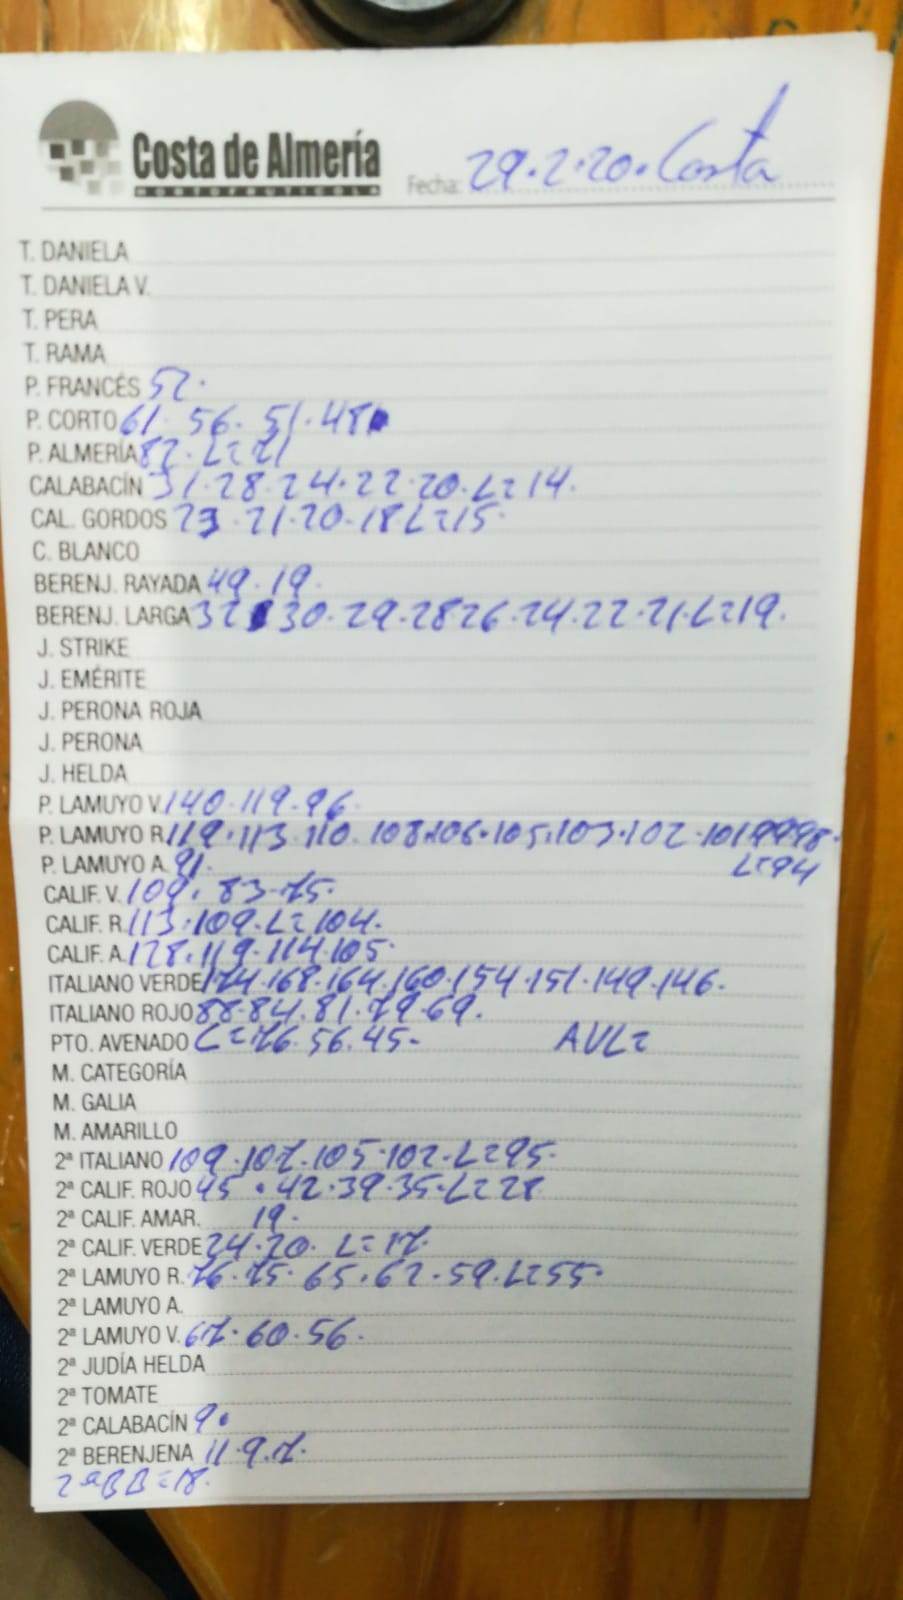 Costa de Almería
HORTOFRUTICOLA
Fecha: 29.2.20. Costa
T. DANIELA
T. DANIELA V.
T. PERA
T. RAMA
P. FRANCÉS 52.
P. CORTO 61. 56. 51. 48
P. ALMERÍA 82. L= 71
CALABACÍN 31.28.24.22.20.L=14.
CAL. GORDOS 23.21.20.18 L=15.
C. BLANCO
BERENJ. RAYADA 49.19.
BERENJ. LARGA 32 30.29.28 26.24.22.21.L=19.
J. STRIKE
J. EMÉRITE
J. PERONA ROJA
J. PERONA
J. HELDA
P. LAMUYO V. 140.119.96.
P. LAMUYO R. 119.113.110.108.106.105.103.102.101 99 98.
L=94
P. LAMUYO A. 91.
CALIF. V. 109. 83.75.
CALIF. R. 113.109.L=104.
CALIF. A. 128.119.114.105.
ITALIANO VERDE 174.168.164.160.154.151.149.146.
ITALIANO ROJO 88.84.81.79.69.
PTO. AVENADO L=76.56.45. AVL=
M. CATEGORÍA
M. GALIA
M. AMARILLO
2ª ITALIANO 109.107.105.102.L=95.
2ª CALIF. ROJO 45.42.39.35.L=28
2ª CALIF. AMAR. 19.
2ª CALIF. VERDE 24.20. L=17.
2ª LAMUYO R. 76.75. 65.62.59.L=55.
2ª LAMUYO A.
2ª LAMUYO V. 67.60.56.
2ª JUDÍA HELDA
2ª TOMATE
2ª CALABACÍN 9.
2ª BERENJENA 11.9.7.
2ªBB=18.